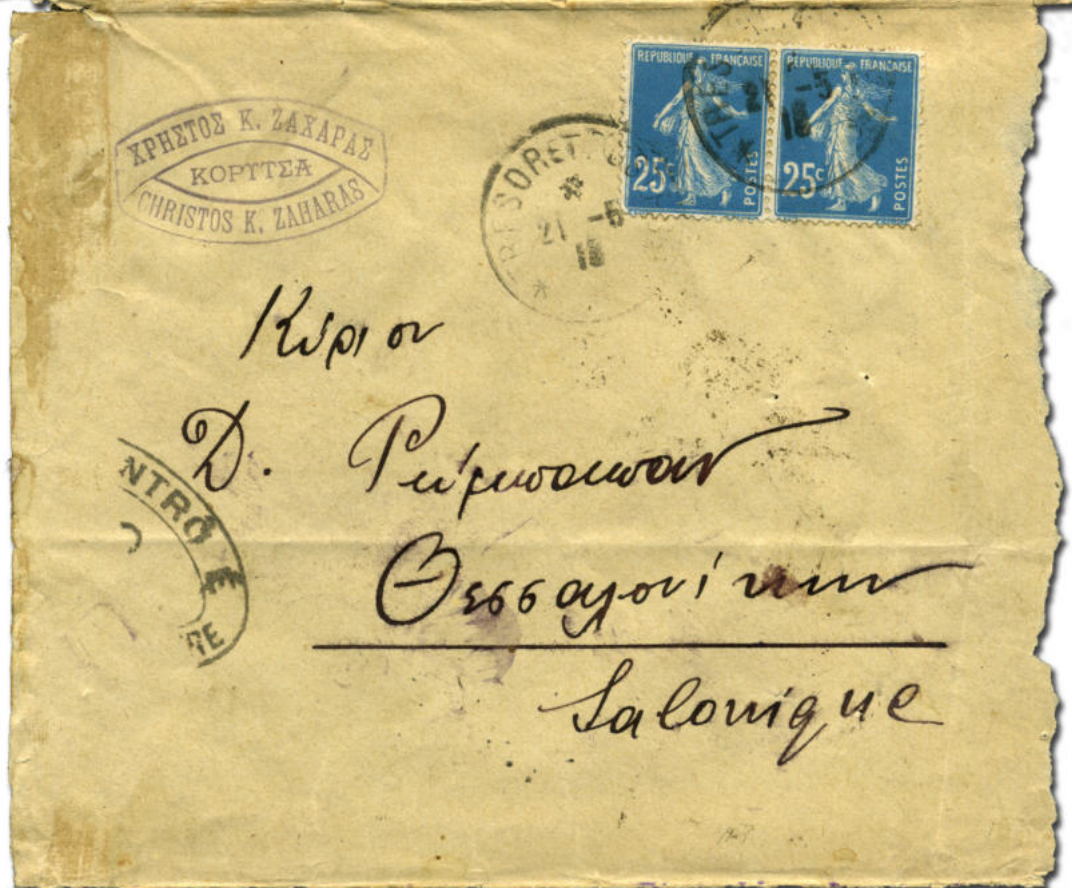 ΧΡΗΣΤΟΣ Κ. ΖΑΧΑΡΑΣ
ΚΟΡΥΤΣΑ
CHRISTOS K. ZAHARAS
REPUBLIQUE FRANÇAISE
25c
POSTES
REPUBLIQUE FRANÇAISE
25c
POSTES
* TRESOR ET
21 -5
18
* TRES
21 -5
18
Κύριον
Δ.
Θεσσαλονίκην
Salonique
NTRÔLE
RE